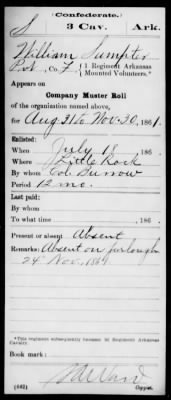 (Confederate.)
S 3 Cav. Ark.
William Sumpter
Pvt, Co. F, 1 Regiment Arkansas Mounted Volunteers.*
Appears on
Company Muster Roll
of the organization named above,
for Aug 31 to Nov. 30, 1861.
Enlisted:
When July 18, 186 .
Where Little Rock
By whom Col. Burrow
Period 12 mo.
Last paid:
By whom
To what time , 186 .
Present or absent Absent
Remarks: Absent on furlough
24 Nov., 1861
*This regiment subsequently became 3d Regiment Arkansas Cavalry.
Book mark:
(642)
Copyist.